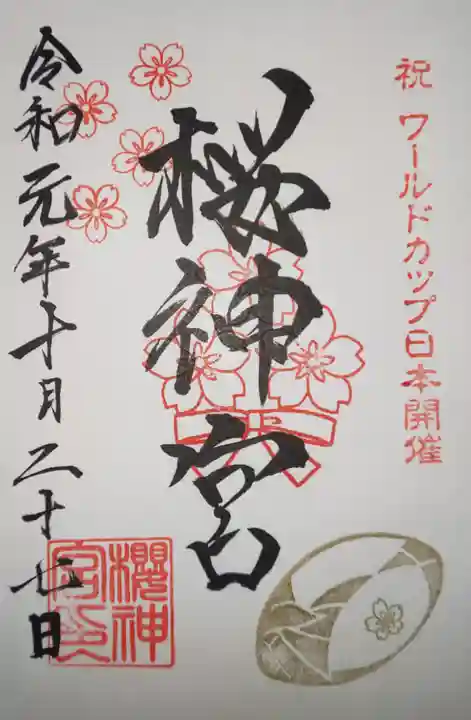 祝 ワールドカップ日本開催
櫻神宮
令和元年十月二十七日
櫻神
宮印